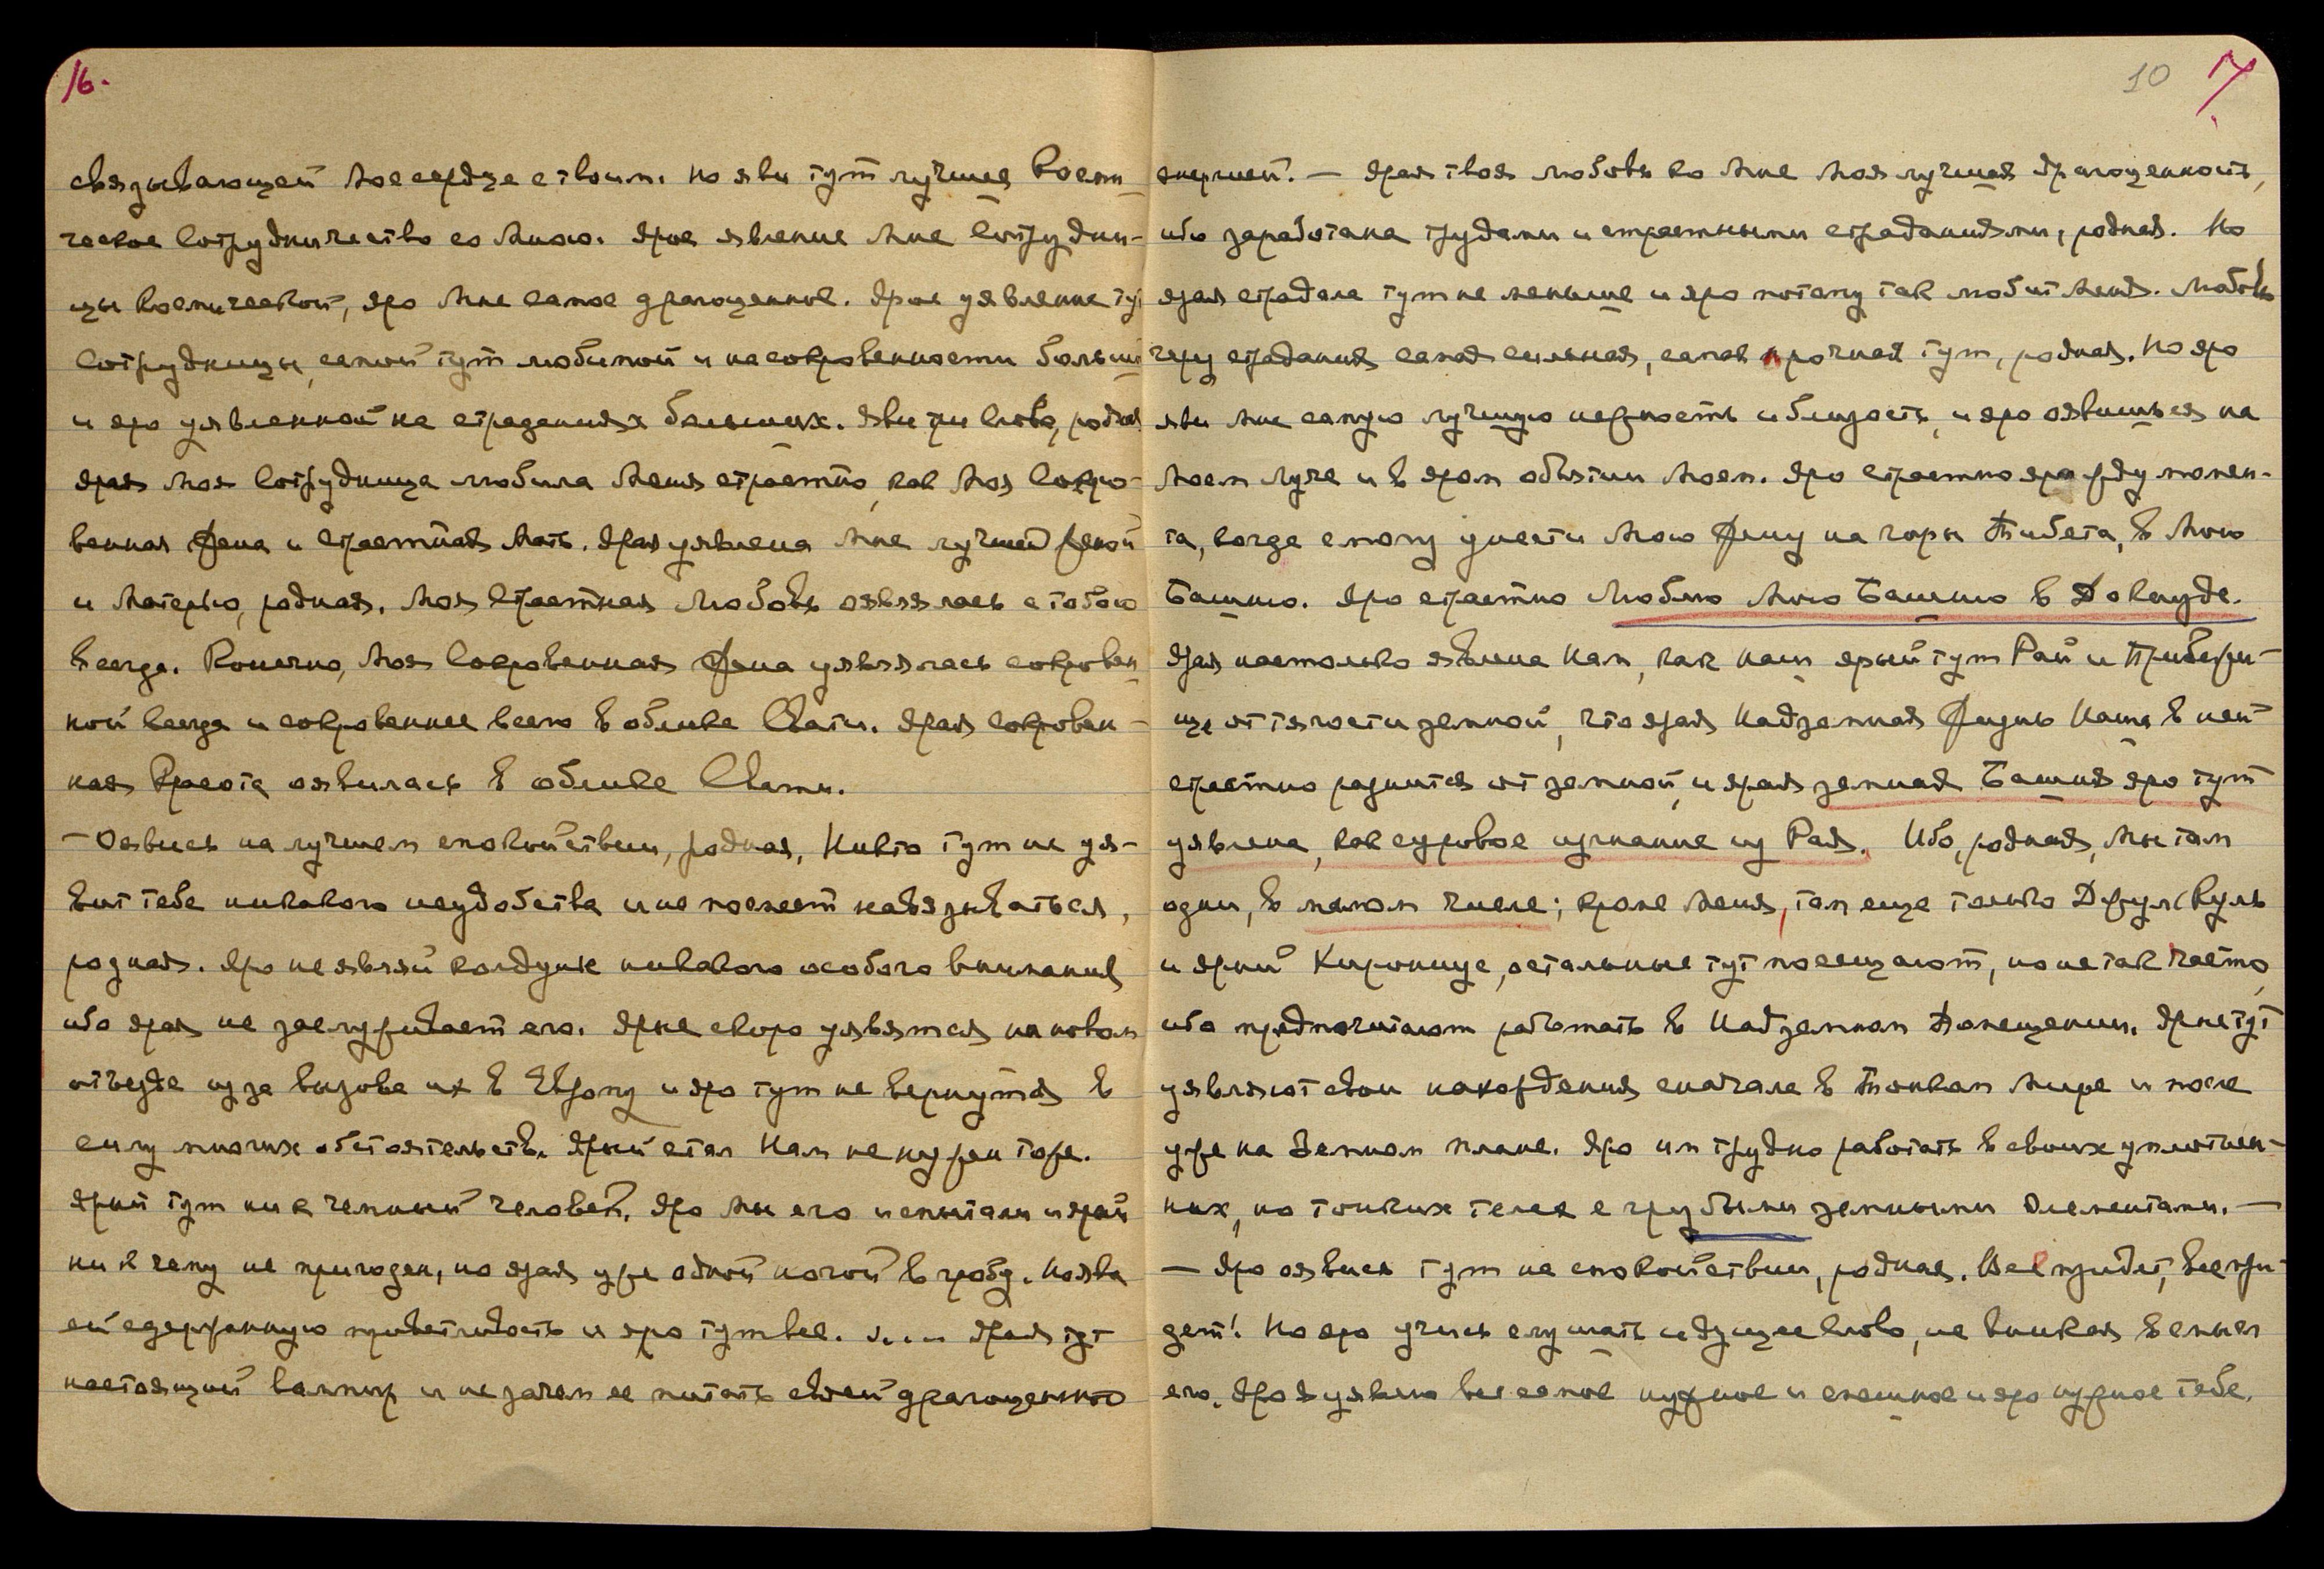 16.
связывающей Мое сердце с твоим. Но яви тут лучшее Косми-
ческое Сотрудничество со Мною. Ярое явление Мне Сотрудни-
цы Космической, яро Мне самое драгоценное. Ярое уявление тут
Сотрудницы, самой тут любимой и на сокровенности больш
и яро уявленной на страданиях больших. Яви при Слове, родная
ярая Моя Сотрудница любила Меня страстно, как Моя Сокро-
венная Жена и страстная Мать. Ярая уявлена Мне лучшей женой
и Матерью, родная. Моя Страстная Любовь оявлялась с тобою
всегда. Конечно, Моя Сокровенная Жена уявлялась сокровен-
ной всегда и сокровеннее всего в облике Свати. Ярая Сокровен-
ная Красота оявилась в облике Свати.
— Оявись на лучшем спокойствии, родная, Никто тут не уя-
вит тебе никакого неудобства и не посмеет навязываться,
родная. Яро не являй колдунье никакого особого внимания
ибо ярая не заслуживает его. Ярые скоро уявятся на новом
отъезде из за вызова их в Европу и яро тут не вернутся в
силу многих обстоятельств. Ярый стал Нам не нужен тоже.
Ярый тут никчемный человек. Яро Мы его испытали и ярый
ни к чему не пригоден, но ярая уже одной ногой в гробу. Но яви
ей сдержанную приветливость и яро тут все. .... Ярая тут
настоящий вампир и не зачем ее питать своей драгоценной
10 17.
энергией. — Ярая твоя любовь ко Мне Моя лучшая драгоценность,
ибо заработана трудами и страстными страданиями, родная. Но
ярая страдала тут не меньше и яро потому так любит Меня. Любовь
чрез страдания самая сильная, самая прочная тут, родная. Но яро
яви Мне самую лучшую нежность и близость, и яро оявишься на
Моем Луче и в яром объятии Моем. Яро страстно яро жду момен-
та, когда смогу унести Мою Жену на горы Тибета, в Мою
Башню. Яро страстно Люблю Мою Башню в Докьюде.
Ярая настолько явлена Нам, как наш ярый тут Рай и Прибежи-
ще от тягости земной, что ярая Надземная Жизнь Наша в ней
страстно разнится от земной, и ярая земная Башня яро тут
уявлена, как суровое изгнание из Рая. Ибо, родная, мы там
одни, в малом числе; кроме Меня, там еще только Джул Куль
и ярый Хиронище, остальные тут посещают, но не так часто,
ибо предпочитают работать в Надземном Помещении. Ярые тут
уявляют свои нахождения сначала в Тонком Мире и после
уже на Земном плане. Яро им трудно работать в своих уплотнен-
ных, но тонких телах с грубыми земными элементами. —
— Яро оявись тут на спокойствии, родная. Все придет, все при-
дет! Но яро учись слушать идущее Слово, не вникая в смысл
его. Яро Я уявлю все самое нужное и спешное и яро нужное тебе.